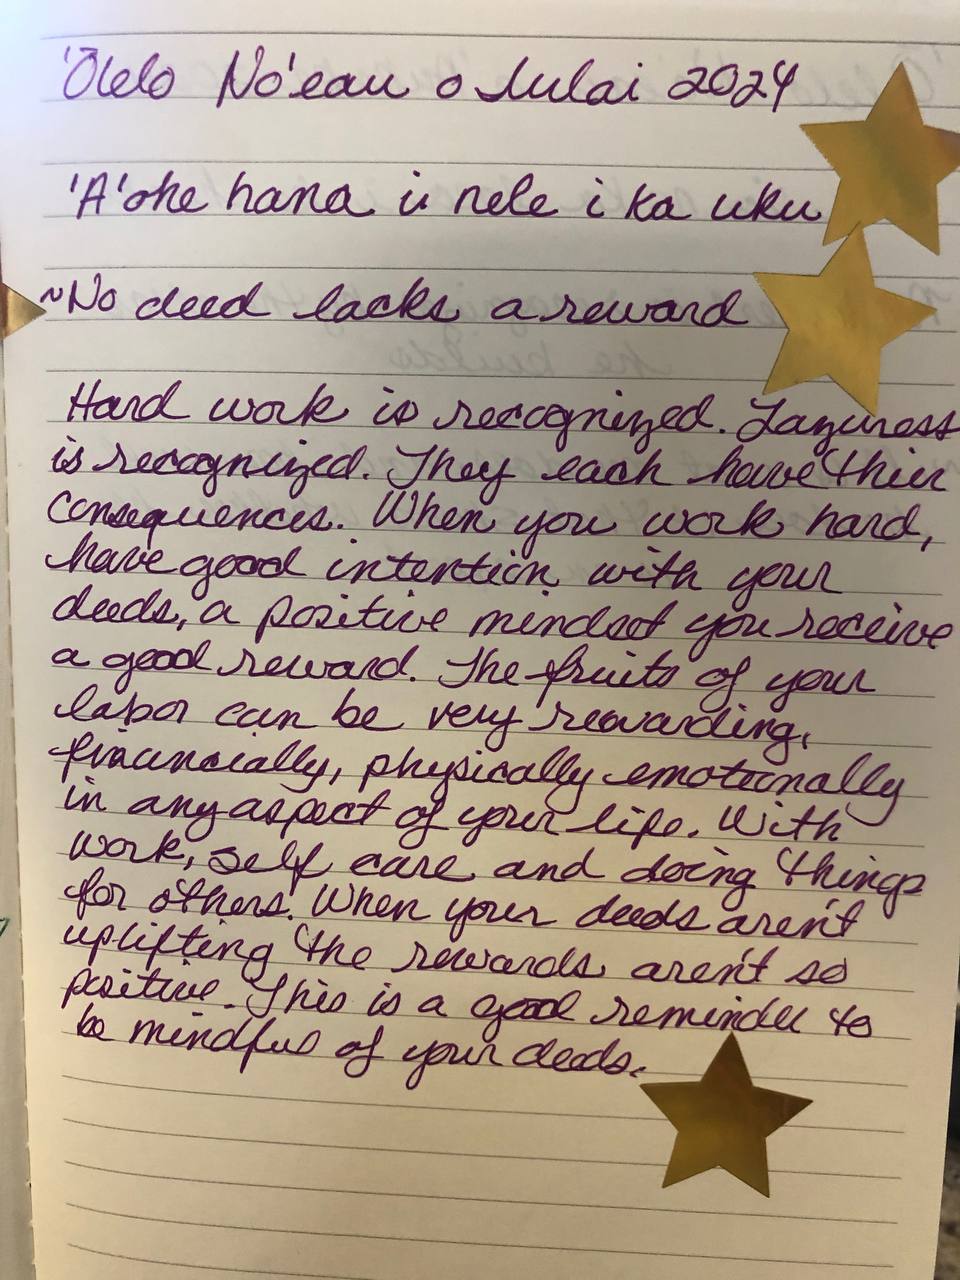 'Ōlelo No'eau o Iulai 2024
'A'ohe hana i nele i ka uku
~No deed lacks a reward
Hard work is recognized. Laziness
is recognized. They each have thier
consequences. When you work hard,
have good intention with your
deeds, a positive mindset you receive
a good reward. The fruits of your
labor can be very rewarding,
financially, physically emotionally
in any aspect of your life. With
work, self care and doing things
for others. When your deeds aren't
uplifting the rewards aren't so
positive. This is a good reminder to
be mindful of your deeds.